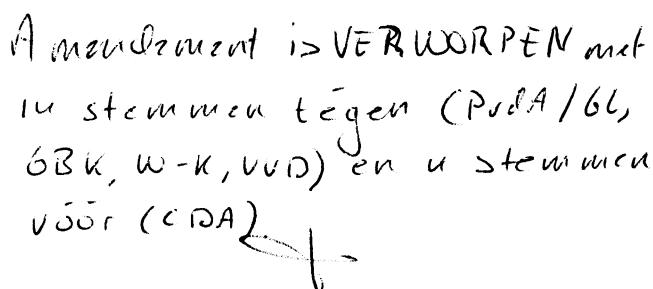 Amendement is VERWORPEN met
14 stemmen tégen (PvdA/GL,
GBK, W-K, VVD) en 4 stemmen
vóór (CDA)